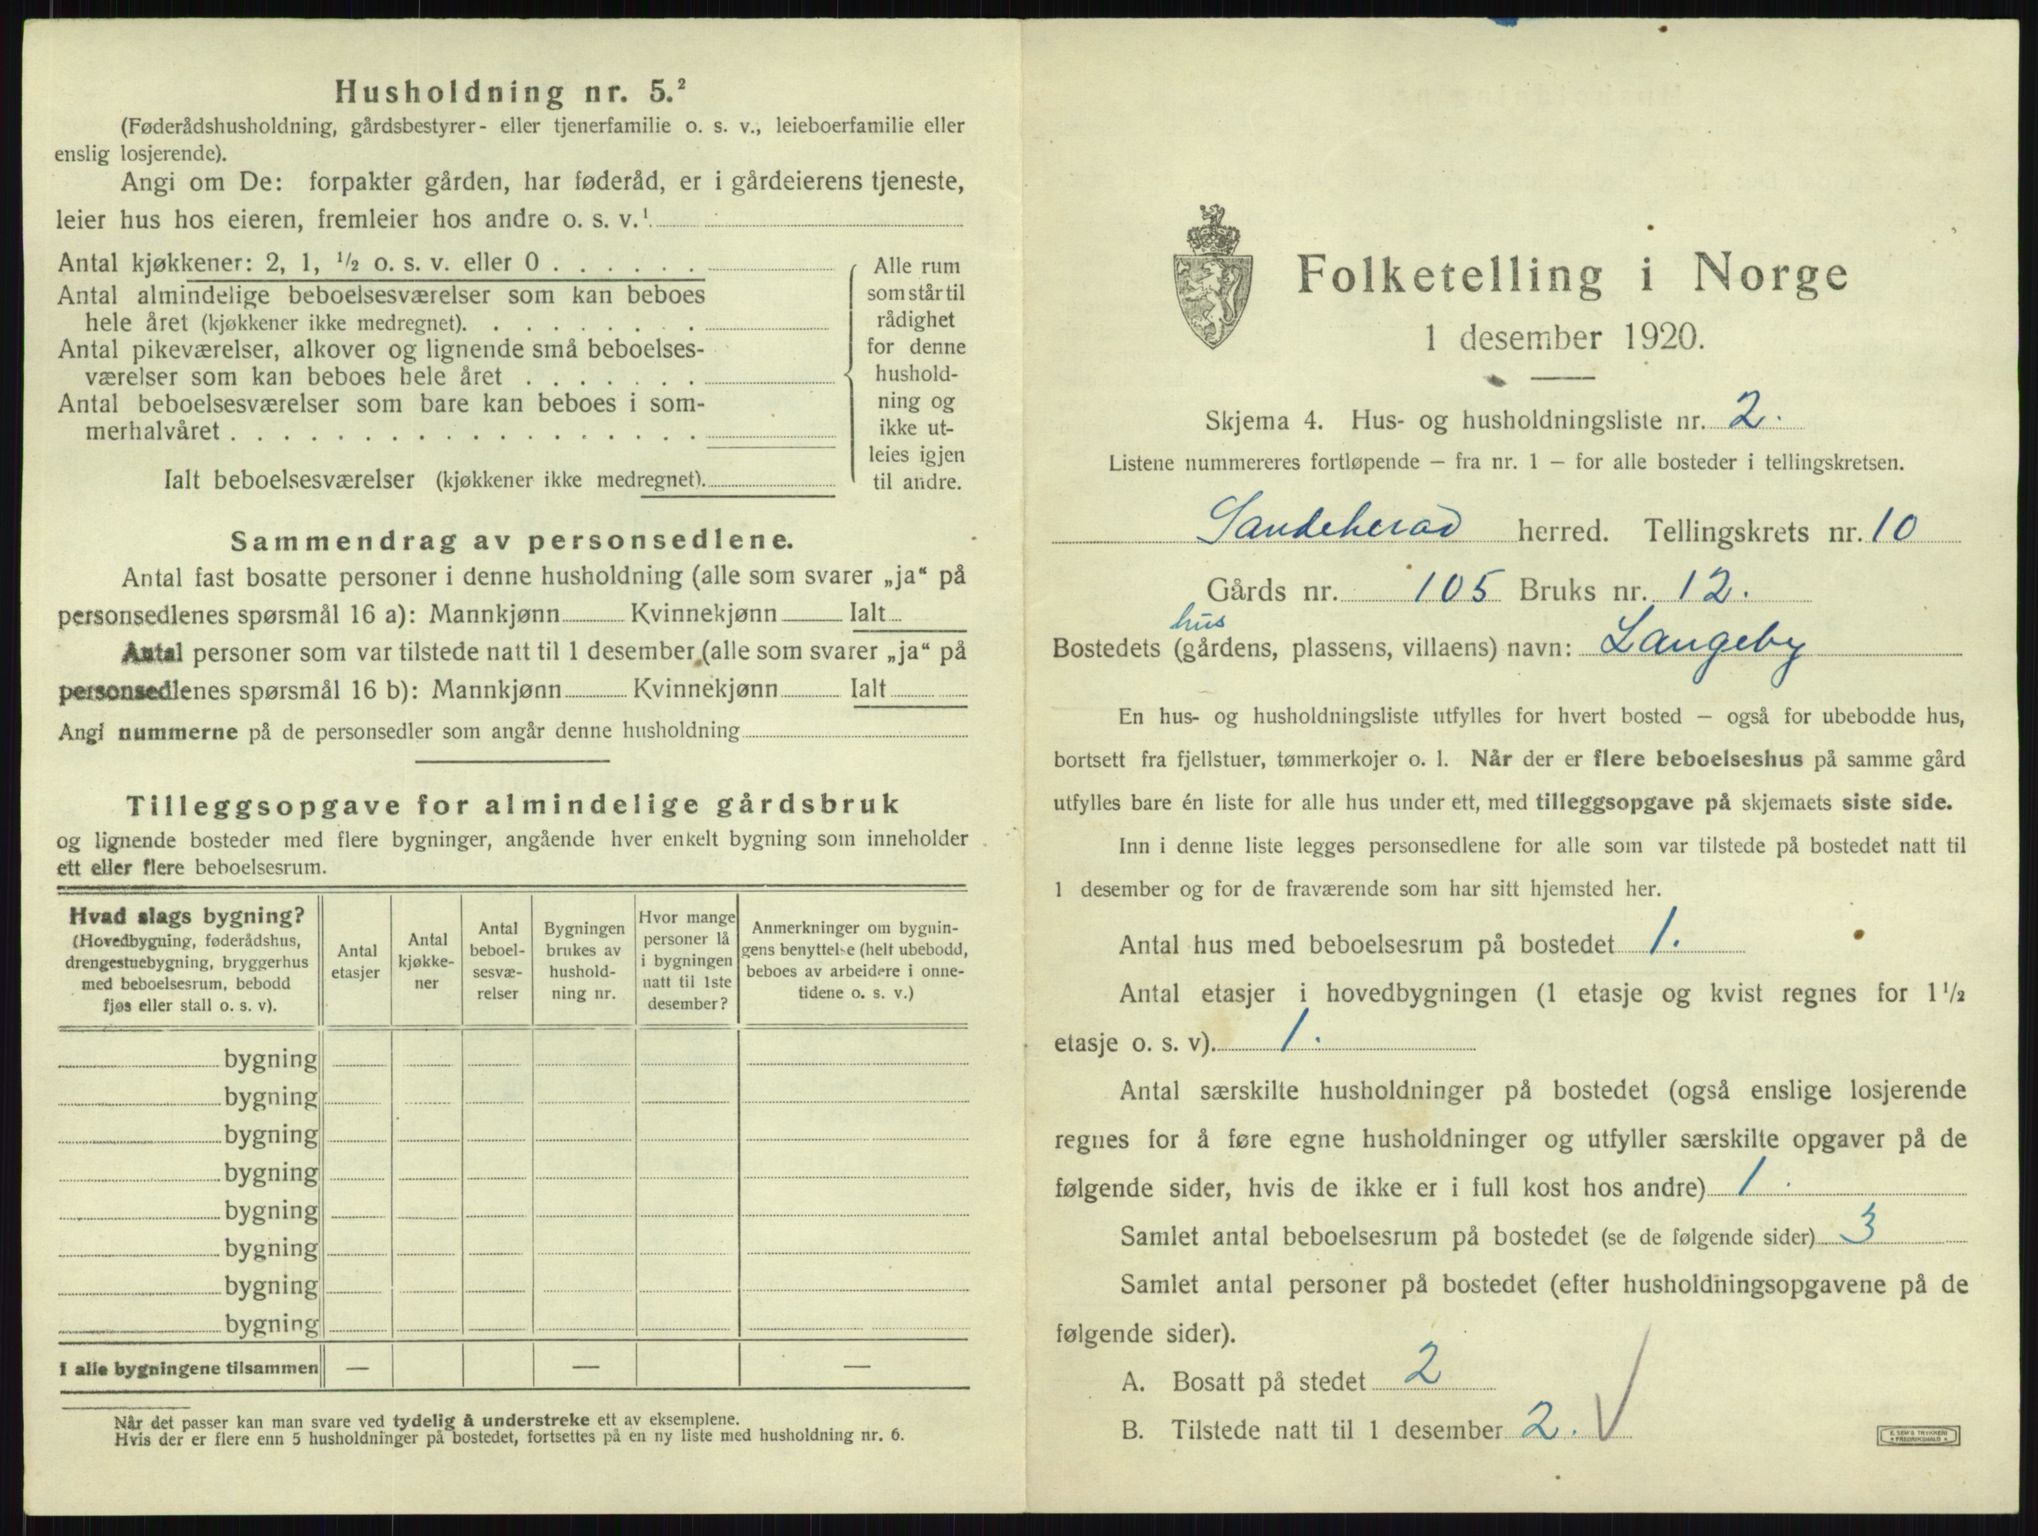 Husholdning nr. 5.²
(Føderådshusholdning, gårdsbestyrer- eller tjenerfamilie o. s. v., leieboerfamilie eller
enslig losjerende).
Angi om De: forpakter gården, har føderåd, er i gårdeierens tjeneste,
leier hus hos eieren, fremleier hos andre o. s. v.¹
Antal kjøkkener: 2, 1, ½ o. s. v. eller 0
Antal almindelige beboelsesværelser som kan beboes
hele året (kjøkkener ikke medregnet).
Antal pikeværelser, alkover og lignende små beboelses-
værelser som kan beboes hele året
Antal beboelsesværelser som bare kan beboes i som-
merhalvåret
Ialt beboelsesværelser (kjøkkener ikke medregnet).
Alle rum
som står til
rådighet
for denne
hushold-
ning og
ikke ut-
leies igjen
til andre.
Sammendrag av personsedlene.
Antal fast bosatte personer i denne husholdning (alle som svarer „ja“ på
personsedlenes spørsmål 16 a): Mannkjønn Kvinnekjønn Ialt
Antal personer som var tilstede natt til 1 desember (alle som svarer „ja“ på
personsedlenes spørsmål 16 b): Mannkjønn Kvinnekjønn Ialt
Angi nummerne på de personsedler som angår denne husholdning
Tilleggsopgave for almindelige gårdsbruk
og lignende bosteder med flere bygninger, angående hver enkelt bygning som inneholder
ett eller flere beboelsesrum.
Hvad slags bygning?
(Hovedbygning, føderådshus,
drengestuebygning, bryggerhus
med beboelsesrum, bebodd
fjøs eller stall o. s. v).
Antal
etasjer
Antal
kjøkke-
ner
Antal
beboel-
sesvæ-
relser
Bygningen
brukes av
hushold-
ning nr.
Hvor mange
personer lå
i bygningen
natt til 1ste
desember?
Anmerkninger om bygnin-
gens benyttelse (helt ubebodd,
beboes av arbeidere i onne-
tidene o. s. v.)
bygning
bygning
bygning
bygning
bygning
bygning
bygning
bygning
I alle bygningene tilsammen — — —
Når det passer kan man svare ved tydelig å understreke ett av eksemplene.
Hvis der er flere enn 5 husholdninger på bostedet, fortsettes på en ny liste med husholdning nr. 6.
Folketelling i Norge
1 desember 1920.
Skjema 4. Hus- og husholdningsliste nr. 2.
Listene nummereres fortløpende — fra nr. 1 — for alle bosteder i tellingskretsen.
Sandeherad herred. Tellingskrets nr. 10
Gårds nr. 105 Bruks nr. 12.
hus
Bostedets (gårdens, plassens, villaens) navn: Langeby
En hus- og husholdningsliste utfylles for hvert bosted — også for ubebodde hus,
bortsett fra fjellstuer, tømmerkojer o. l. Når der er flere beboelseshus på samme gård
utfylles bare én liste for alle hus under ett, med tilleggsopgave på skjemaets siste side.
Inn i denne liste legges personsedlene for alle som var tilstede på bostedet natt til
1 desember og for de fraværende som har sitt hjemsted her.
Antal hus med beboelsesrum på bostedet 1.
Antal etasjer i hovedbygningen (1 etasje og kvist regnes for 1½
etasje o. s. v). 1.
Antal særskilte husholdninger på bostedet (også enslige losjerende
regnes for å føre egne husholdninger og utfyller særskilte opgaver på de
følgende sider, hvis de ikke er i full kost hos andre) 1.
Samlet antal beboelsesrum på bostedet (se de følgende sider) 3
Samlet antal personer på bostedet (efter husholdningsopgavene på de
følgende sider).
A. Bosatt på stedet 2
B. Tilstede natt til 1 desember 2.
E. SEM'S TRYKKERI
FREDRIKSHALD